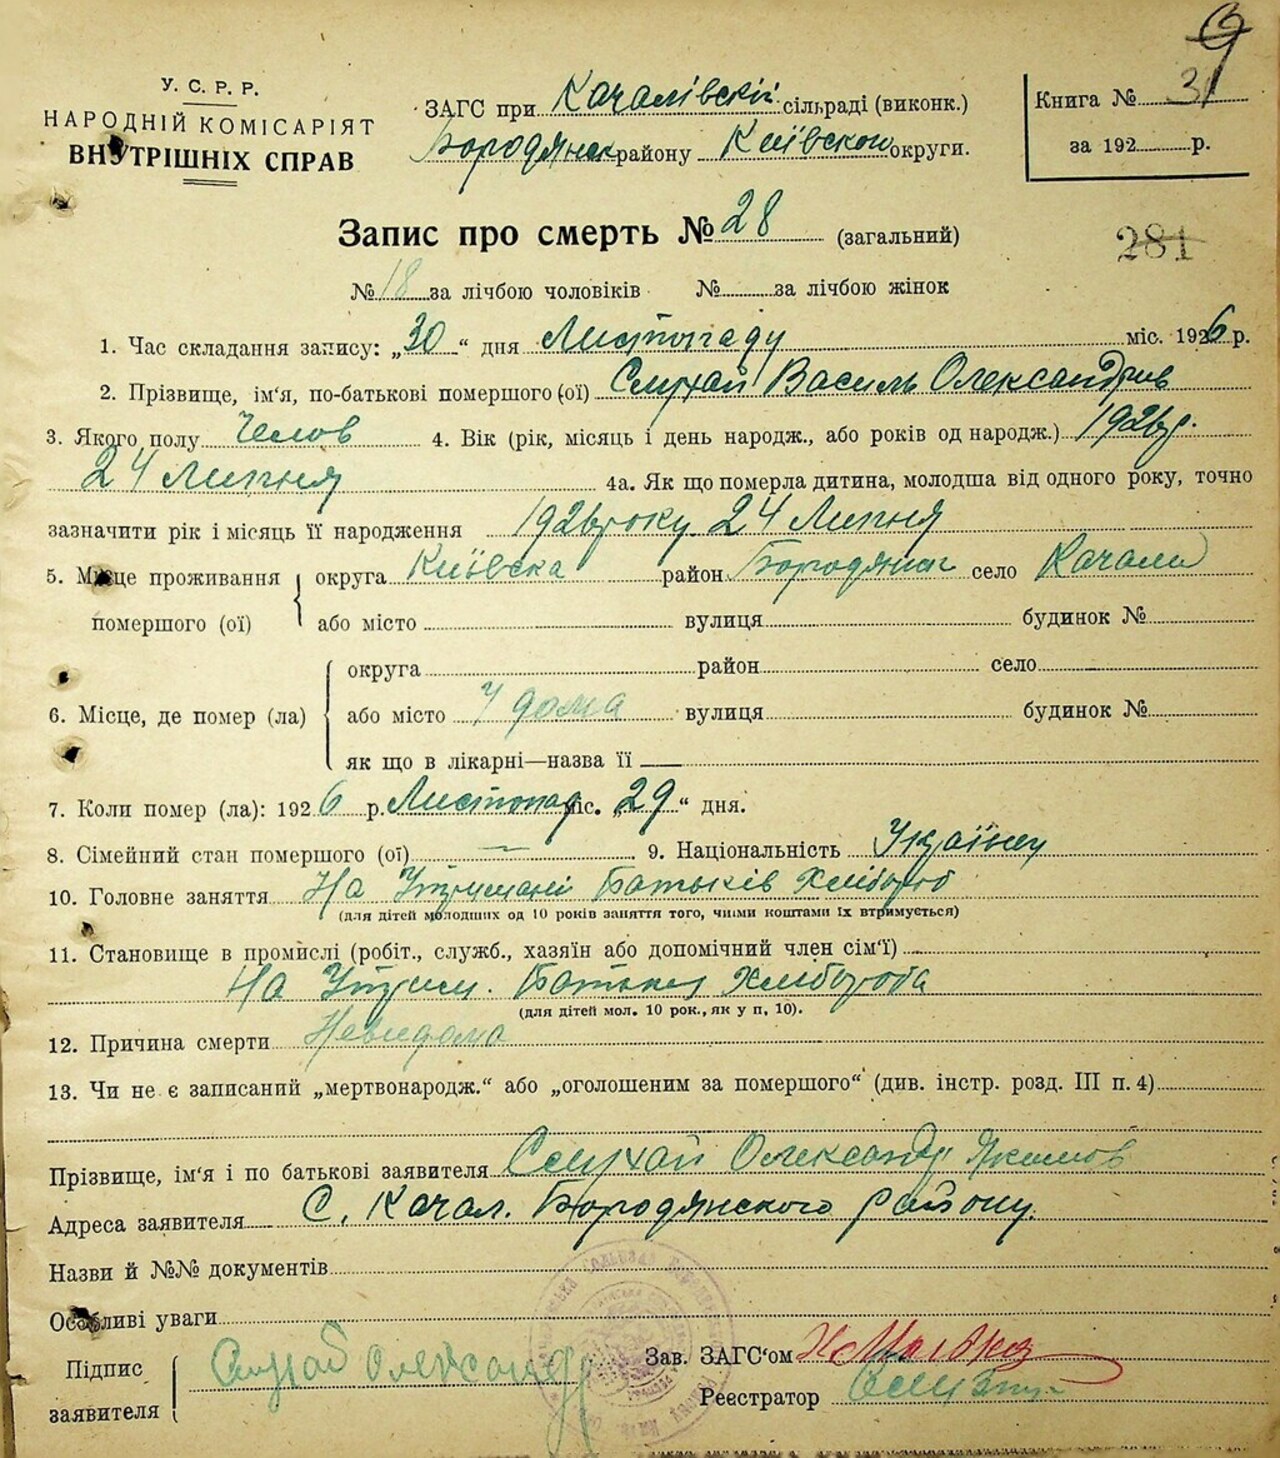 У. С. Р. Р.
НАРОДНІЙ КОМІСАРІЯТ
ВНУТРІШНІХ СПРАВ
ЗАГС при Качалівскій сільраді (виконк.)
Бородянск району Київскои округи.
Книга № 31
за 192 р.
9
Запис про смерть № 28 (загальний)
281
№ 18 за лічбою чоловіків № за лічбою жінок
1. Час складання запису: „30“ дня Листопаду міс. 1926 р.
2. Прізвище, ім'я, по-батькові помершого (ої) Слухай Василь Олександрів
3. Якого полу Челов 4. Вік (рік, місяць і день народж., або років од народж.) 1926 р.
24 Липня 4а. Як що померла дитина, молодша від одного року, точно
зазначити рік і місяць її народження 1926 року 24 Липня
5. Місце проживання округа Київска район Бородянск село Качали
помершого (ої) або місто вулиця будинок №
округа район село
6. Місце, де помер (ла) або місто У дома вулиця будинок №
як що в лікарні—назва її
7. Коли помер (ла): 1926 р. Листопад міс. „29“ дня.
8. Сімейний стан помершого (ої) — 9. Національність Українец
10. Головне заняття На Утримані Батьків Хлібороб
(для дітей молодших од 10 років заняття того, чиїми коштами їх втримується)
11. Становище в промислі (робіт., служб., хазяїн або допомічний член сім'ї)
На Утрим. Батька Хлібороба
(для дітей мол. 10 рок., як у п, 10).
12. Причина смерти Невидома
13. Чи не є записаний „мертвонародж.“ або „оголошеним за помершого“ (див. інстр. розд. III п. 4)
Прізвище, ім'я і по батькові заявителя Слухай Олександр Якимов
Адреса заявителя С. Качал. Бородянского району.
Назви й №№ документів
Особливі уваги
Підпис Слухай Олександр Зав. ЗАГС'ом
заявителя Реєстратор